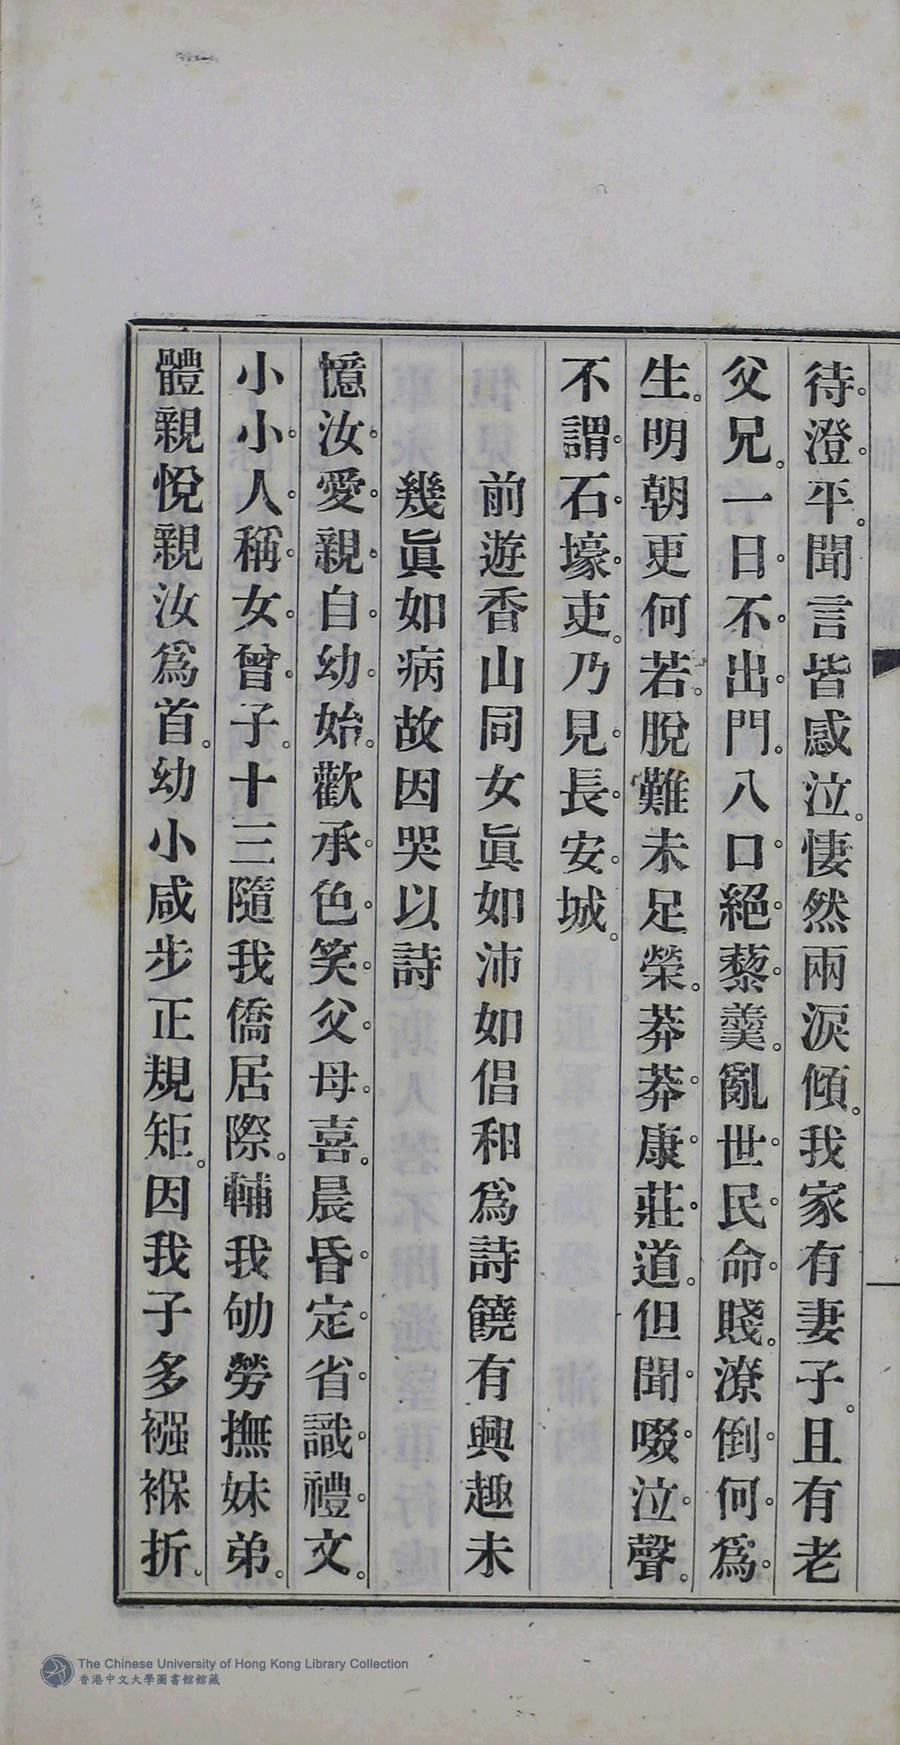 待澄平。聞言皆感泣。悽然兩淚傾。我家有妻子。且有老
父兄。一日不出門。八口絕藜羹。亂世民命賤。潦倒何爲
生。明朝更何若。脫難未足榮。莽莽康莊道。但聞啜泣聲。
不謂石壕吏。乃見長安城。
前遊香山同女眞如沛如倡和爲詩饒有興趣未
幾眞如病故因哭以詩
憶汝愛親自幼始。歡承色笑父母喜。晨昏定省識禮文。
小小人稱女曾子。十三隨我僑居際。輔我劬勞撫妹弟。
體親悅親汝爲首。幼小咸步正規矩。因我子多襁褓折。
The Chinese University of Hong Kong Library Collection
香港中文大學圖書館館藏